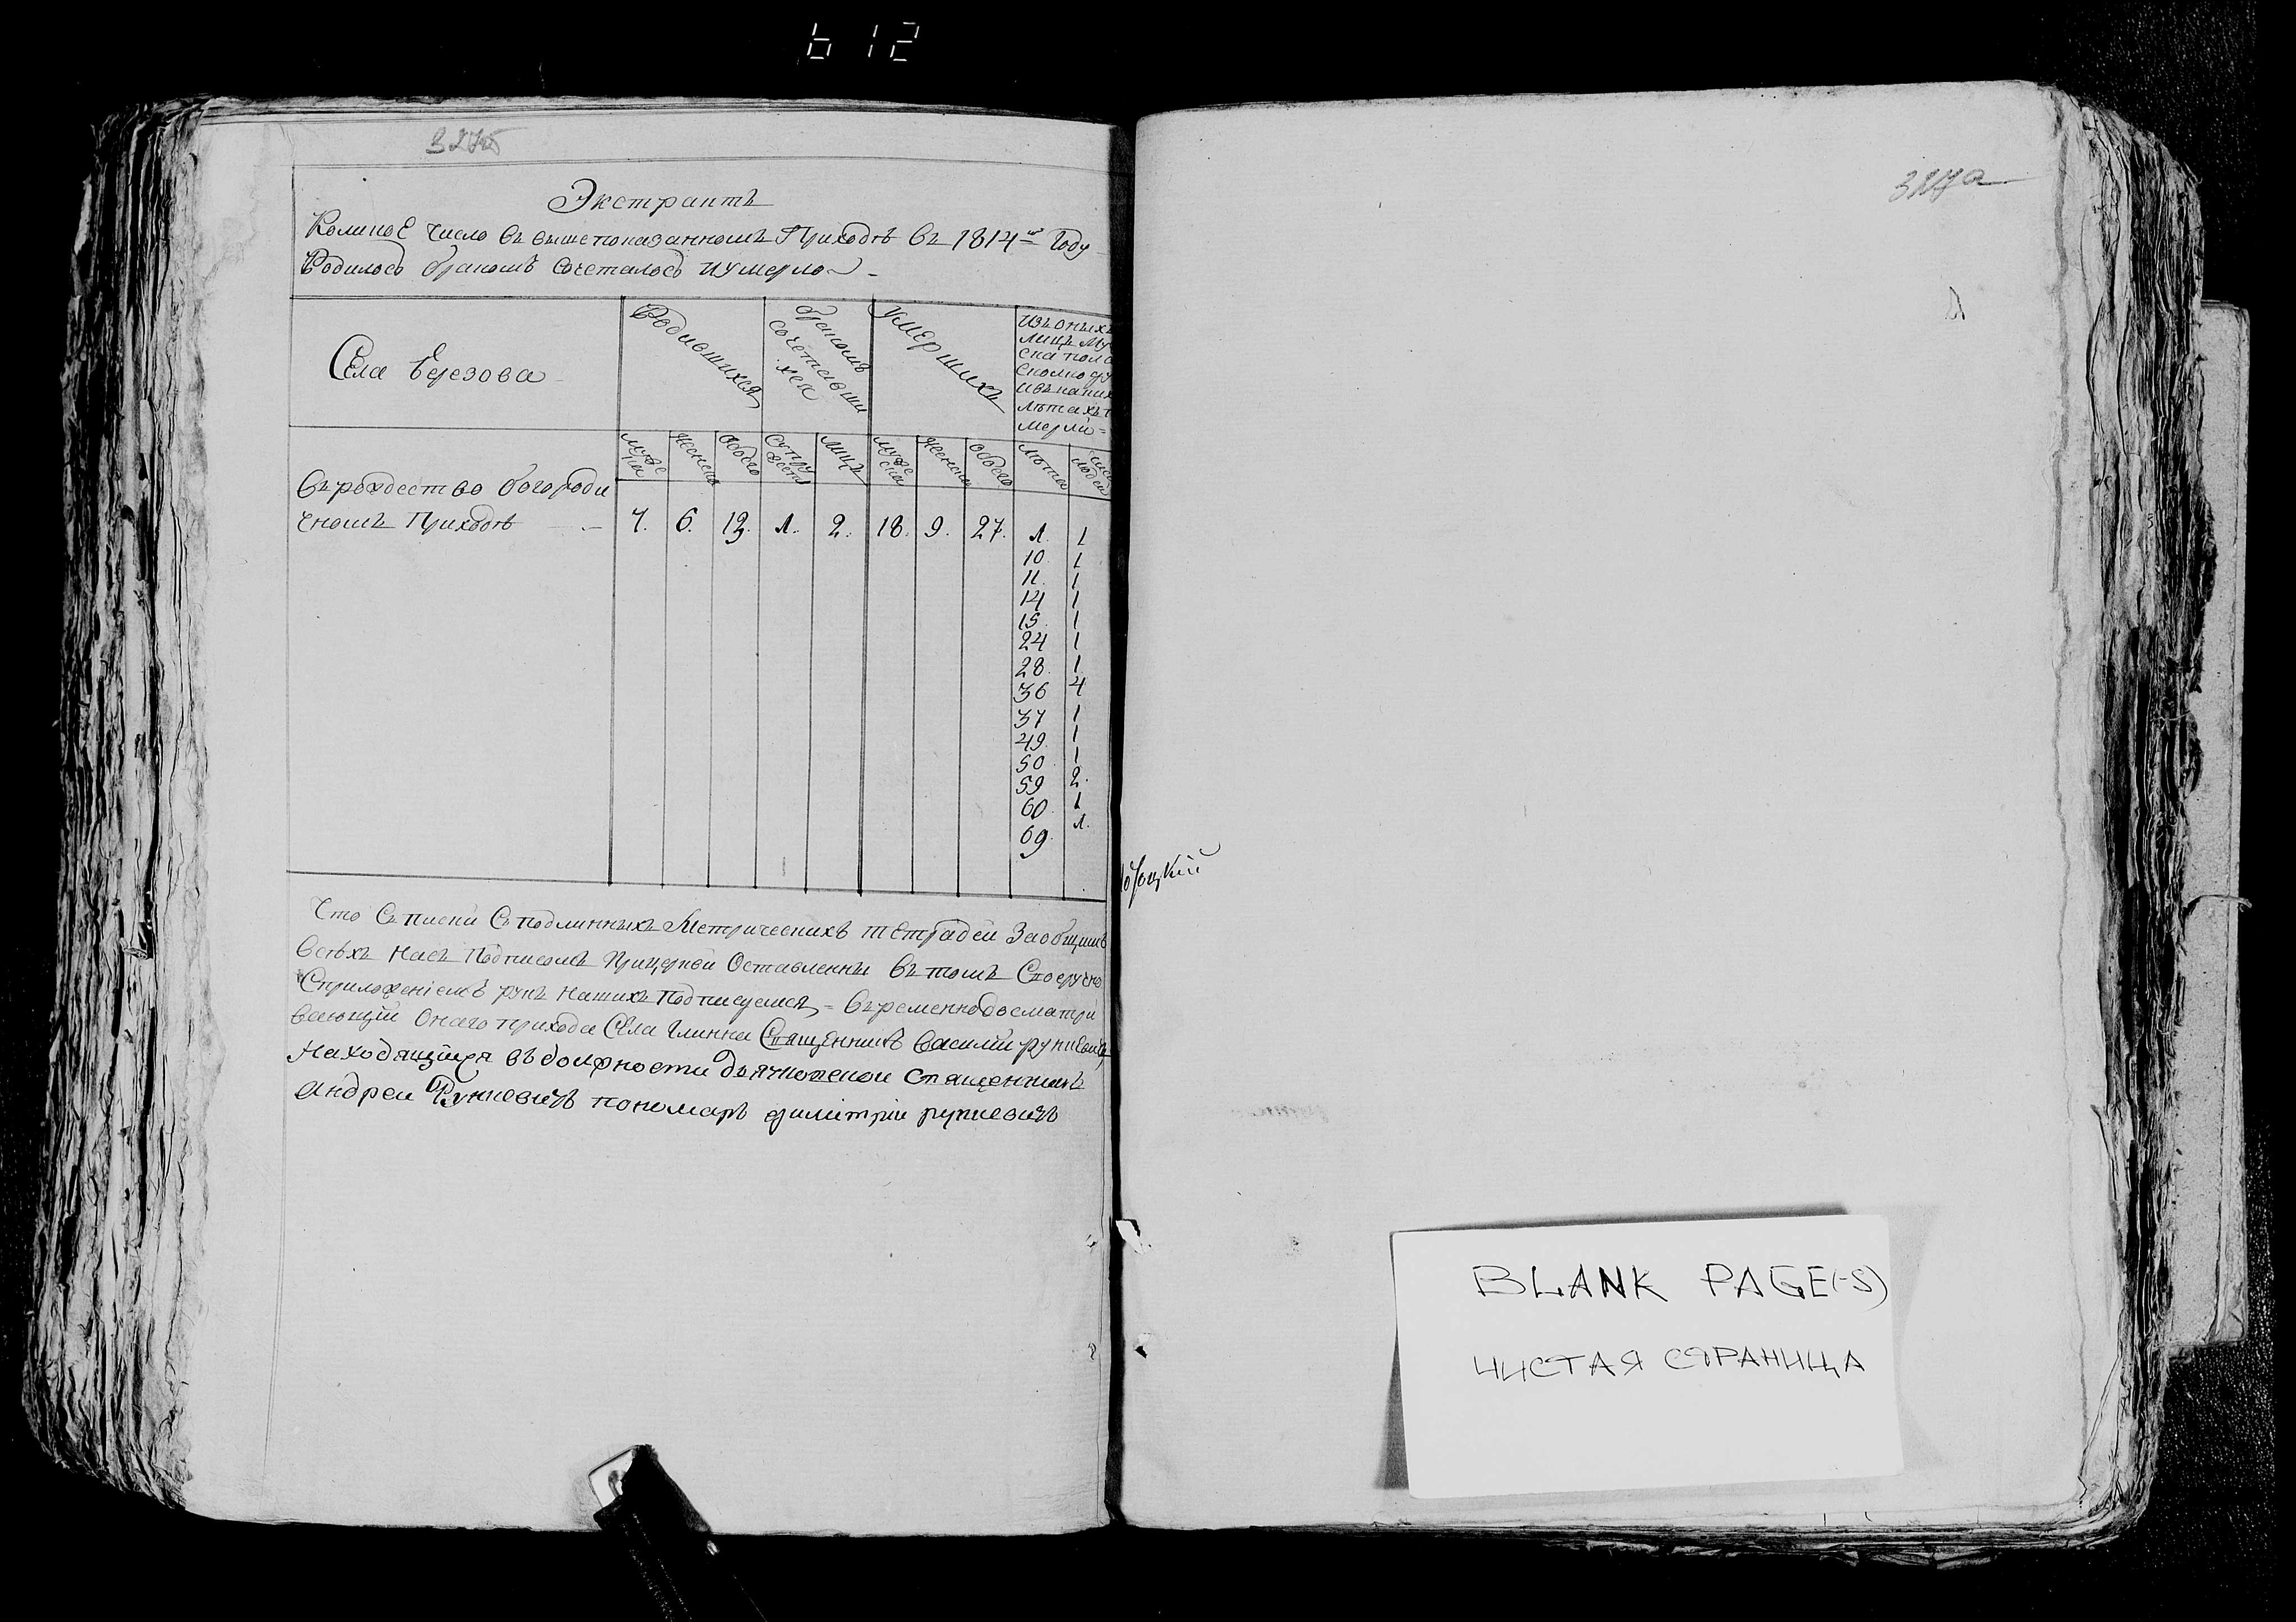 612
Экстрактъ
Коликое число въ вышепоказанномъ Приходѣ въ 1814м Году
Родилось бракомъ Сочеталось и умерло
Села Березова
Родившихся
бракомъ сочетавши хся
Умершихъ
Изъ оныхъ
лицъ
ска пола
сколко
и въ каких
лѣтахъ
мерло =
муже ска
женска
Обоего
супру жествъ
лицъ
муже ска
женска
Обоего
лѣта
людей
Въ рождество богороди
чномъ Приходѣ
7. 6. 13. 1. 2. 18. 9. 27. 1. 1
10 1
11. 1
14 1
15. 1
24 1
28. 1
36 4
37 1
49. 1
50 1
59 2.
60. 1
69. 1.
Что Съ писки Съ подлинныхъ Метрическихъ тетрадей За общимъ
всѣхъ насъ Подписомъ Прицеркви Оставленны въ томъ
Сприложеніемъ рукъ Нашихъ Подписуемся = Временно досматри
вающій Онаго прихода Села Глинки Священникъ Василий
Находящийся въ должности дьячковской Священникъ
Андреи Рункевичъ пономарь димитрии рункевичъ
317а
BLANK PAGE(-S)
ЧИСТАЯ СТРАНИЦА